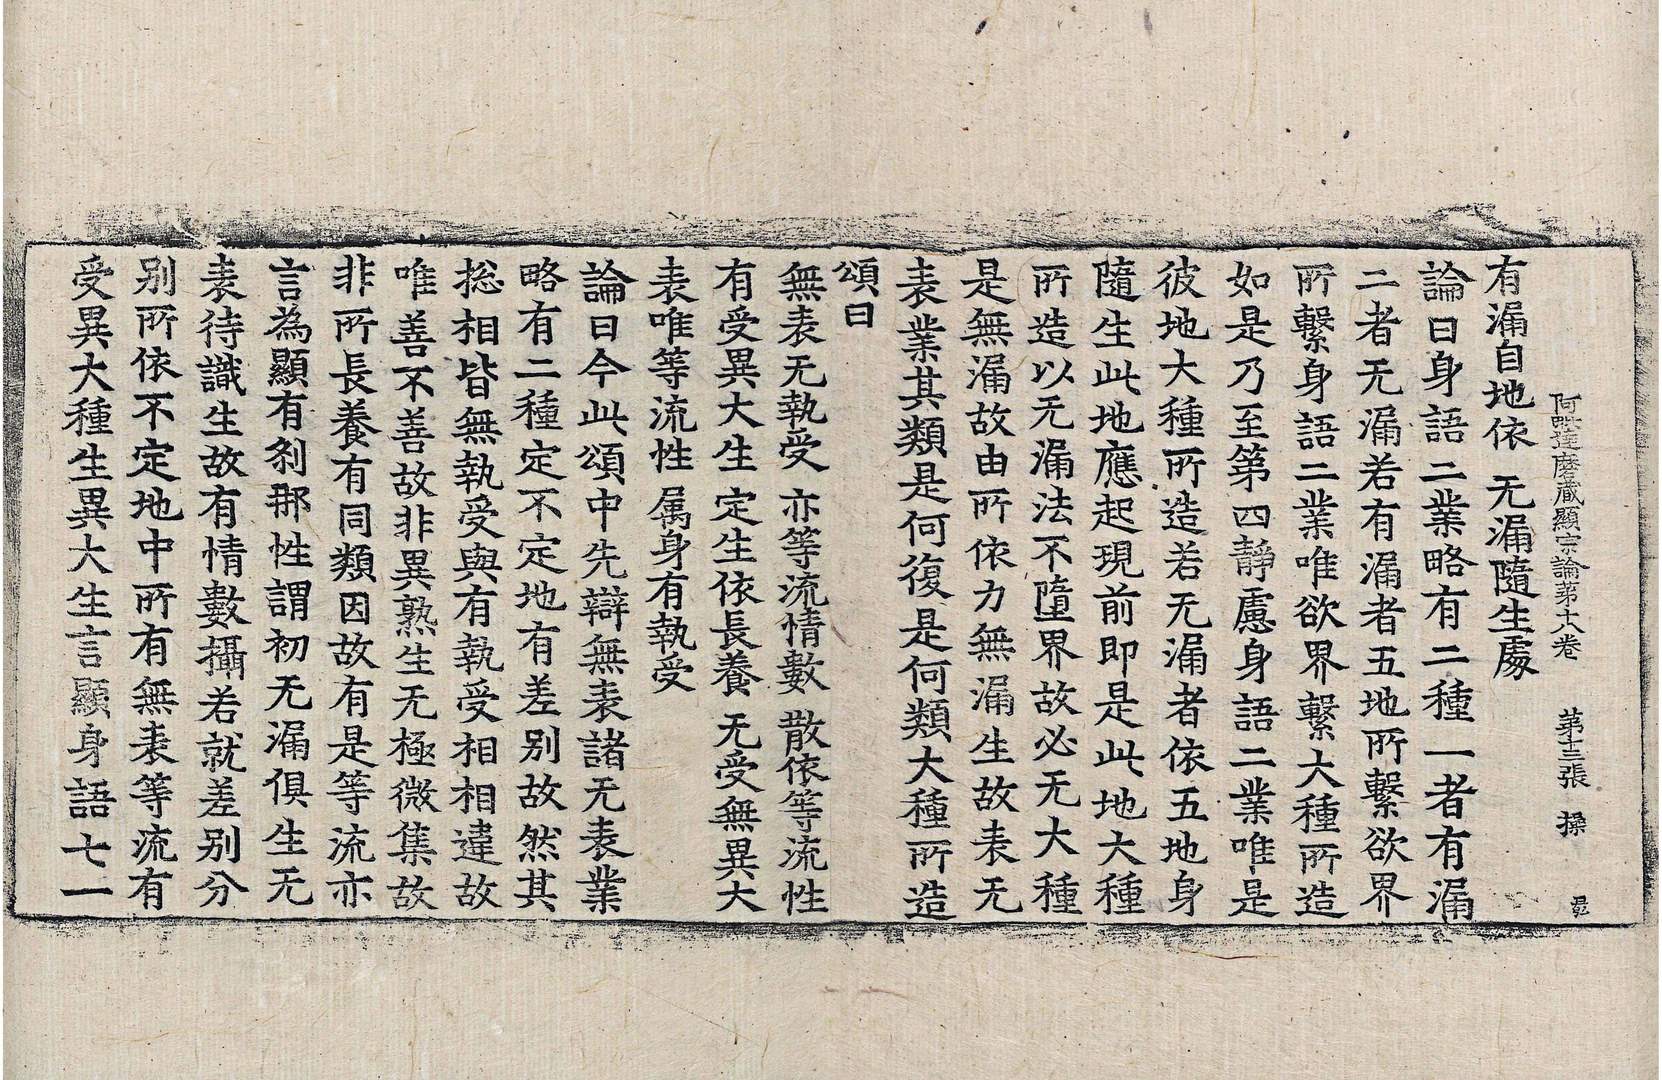 阿毗達磨藏顯宗論第十八卷 第十三張 操
有漏自地依 无漏隨生處
論曰身語二業略有二種一者有漏
二者无漏若有漏者五地所繫欲界
所繫身語二業唯欲界繫大種所造
如是乃至第四靜慮身語二業唯是
彼地大種所造若无漏者依五地身
隨生此地應起現前即是此地大種
所造以无漏法不墮界故必无大種
是無漏故由所依力無漏生故表无
表業其類是何復是何類大種所造
頌曰
無表无執受 亦等流情數 散依等流性
有受異大生 定生依長養 无受無異大
表唯等流性 属身有執受
論曰今此頌中先辯無表諸无表業
略有二種定不定地有差别故然其
捴相皆無執受與有執受相相違故
唯善不善故非異熟生无極微集故
非所長養有同類因故有是等流亦
言為顯有刹那性謂初无漏俱生无
表待識生故有情數攝若就差别分
别所依不定地中所有無表等流有
受異大種生異大生言顯身語七一